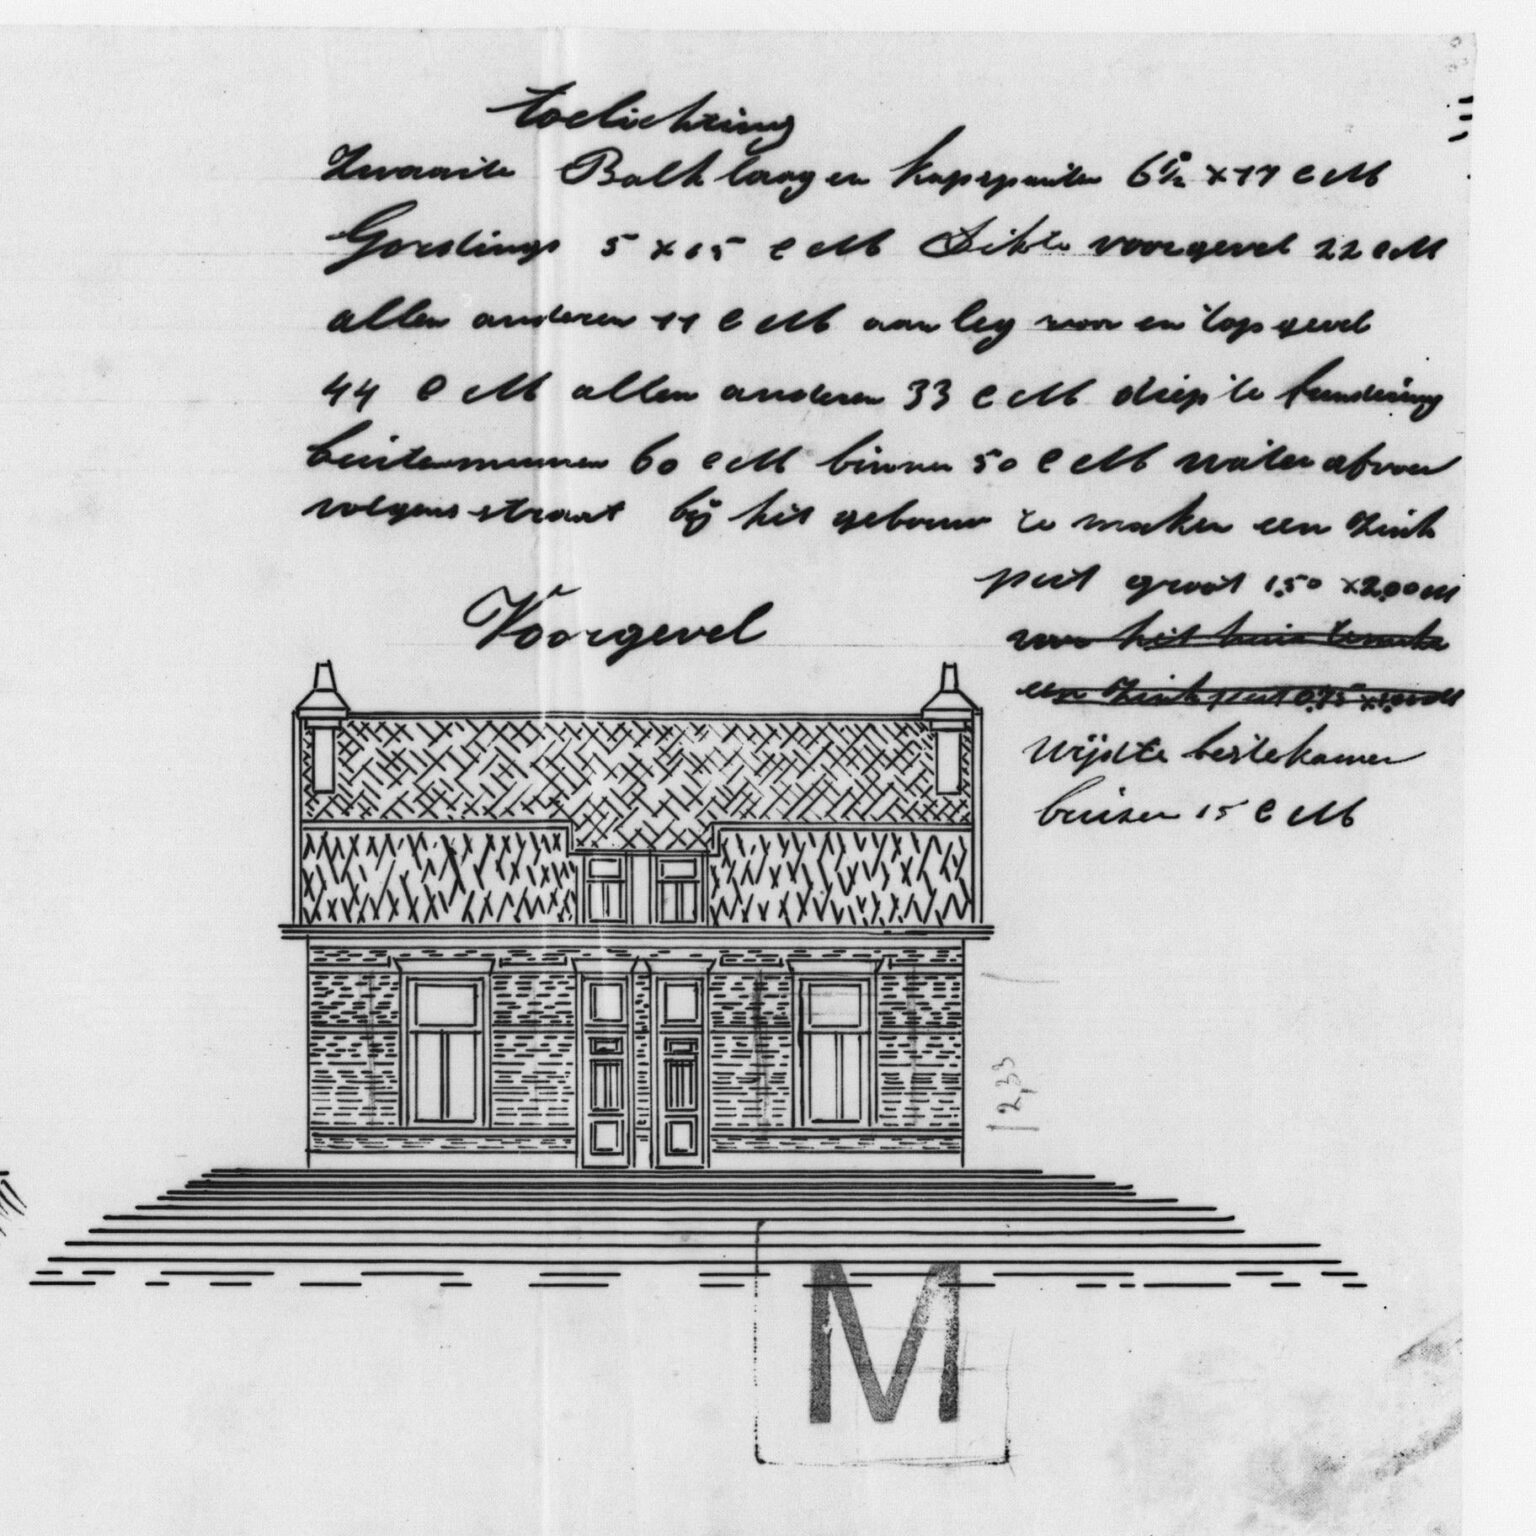 toelichting
Zwaarte Balklaag en kapspanten 6½ x 17 c M
Gordings 5 x 15 c M Dikte voorgevel 22 c M
allen anderen 11 c M aanleg voor en topgevel
44 c M allen anderen 33 c M diepte fundering
buitenmuren 60 c M binnen 50 c M waterafvoer
volgens straat bij het gebouw te maken een zink
put groot 1.50 x 2.00 M
Voorgevel
voor het huis te maken
een zinkput 0.75 x 1.00 M
wijdte bestekamer
buizen 15 c M
2,33
M